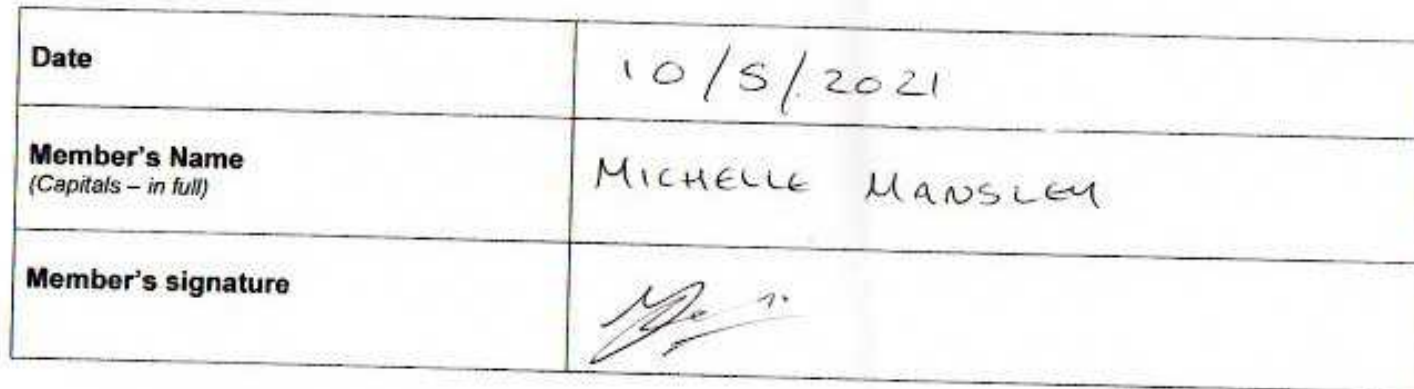 Date
10/5/2021
Member's Name
(Capitals – in full)
MICHELLE MANSLEY
Member's signature